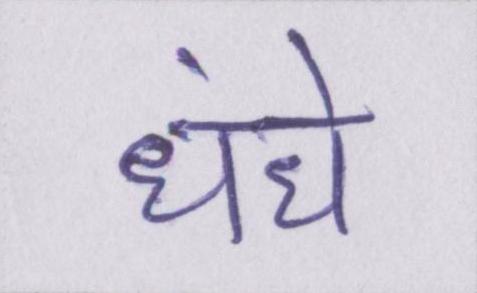 धंधे